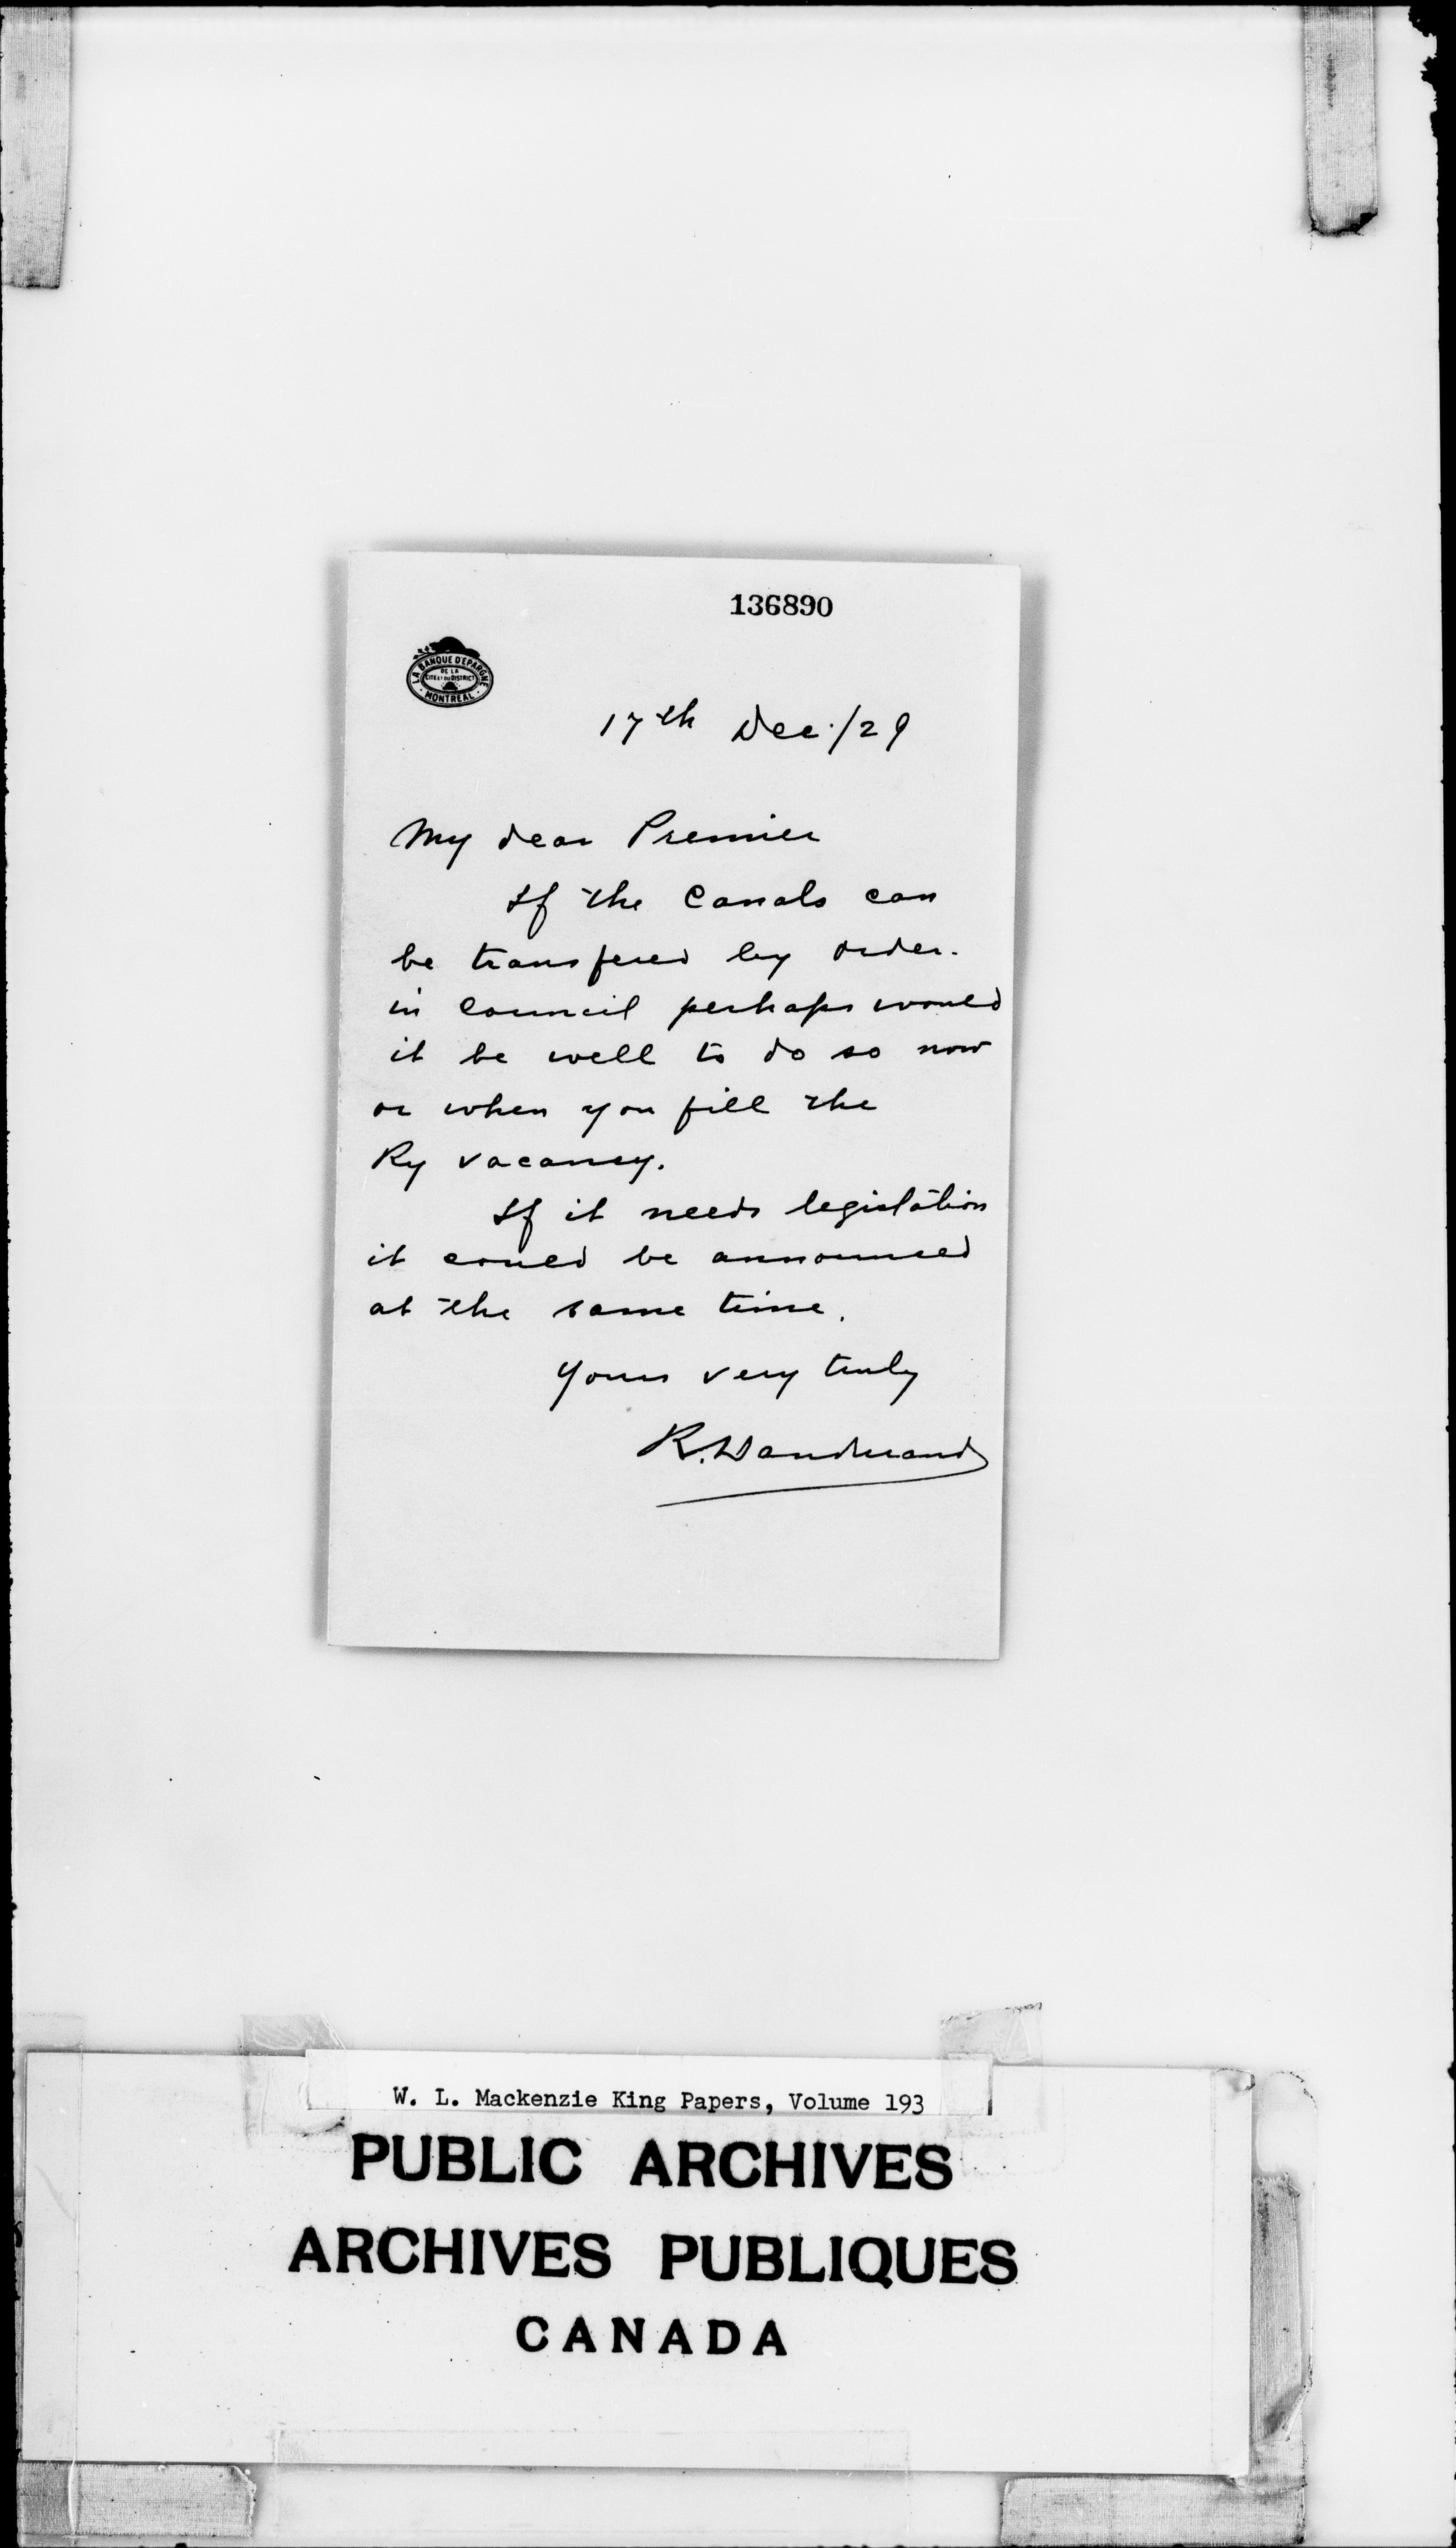 136890
LA BANQUE D'EPARGNE
DE LA
CITE ET DU DISTRICT
MONTREAL
17th Dec./29
My dear Premier
If the Canals can
be transfered by order-
in Council perhaps would
it be well to do so now
or when you fill the
Ry vacancy.
If it needs legislation
it could be announced
at the same time.
Yours very truly
R. Dandurand
W. L. Mackenzie King Papers, Volume 193
PUBLIC ARCHIVES
ARCHIVES PUBLIQUES
CANADA